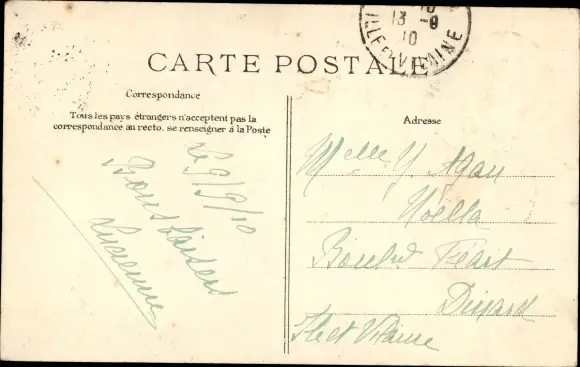 13 -9
10
ILLE-ET-VILAINE
CARTE POSTALE
Correspondance
Tous les pays étrangers n'acceptent pas la
correspondance au recto, se renseigner à la Poste
Le 9/9/10
Bons baisers
Lucienne
Adresse
Melle Y. Agan
Noëlla
Boulvd Féart
Dinard
Ille et Vilaine